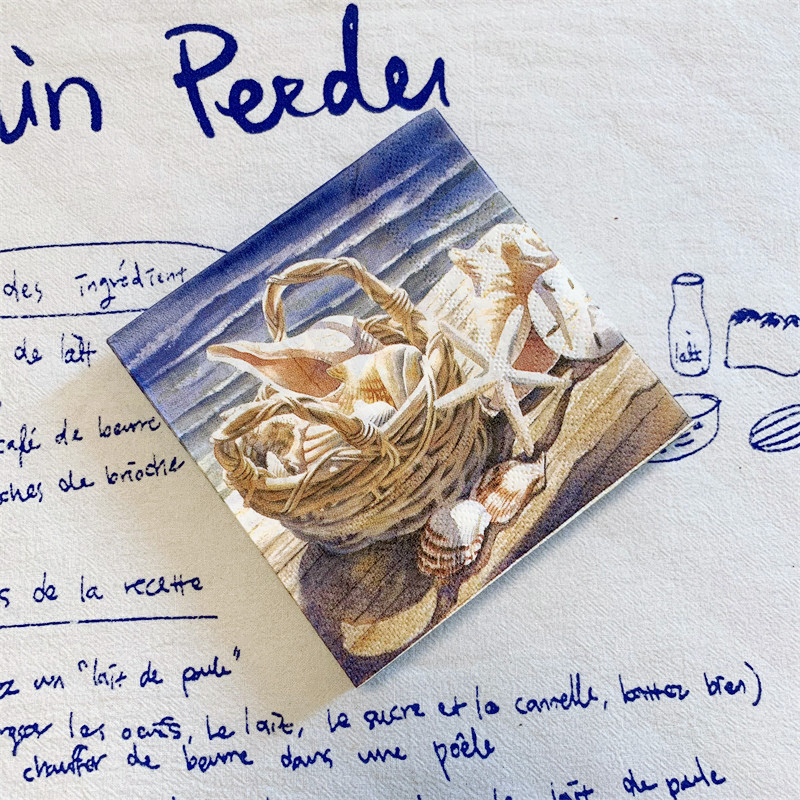 in Perdu
des ingrédient
de lait
lait
café de beurre
ches de brioche
s de la recette
ez un "lait de poule"
les oeufs, le lait, le sucre et la cannelle, battez bien)
chauffer de beurre dans une poêle
lait de poule